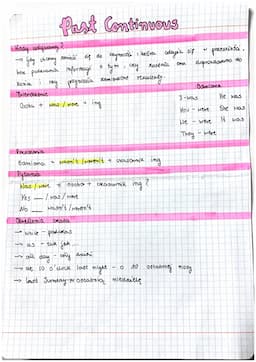 Past Continuous
Kiedy używamy?
→ gdy chcemy odnieść się do czynności i która odbyła się w przeszłości,
bez podawania informacji o tym, czy została ona doprowadzona do
końca i czy przyniosła zamierzone rezultaty.
Twierdzenie
Odmiana
Osoba + was / were + ing
I - was He was
You - were She was
We - were It was
They - were
Przeczenia
+ wasn't / weren't + czasownik ing
Pytania
Was / were + osoba + czasownik ing ?
Yes __ / was / were
No __ wasn't / weren't
Określenia czasu
→ while - podczas
→ as - tak jak
→ all day - cały dzień
→ at 10 o'clock last night - o 10 ostatniej nocy
→ last Sunday - w ostatnią niedzielę